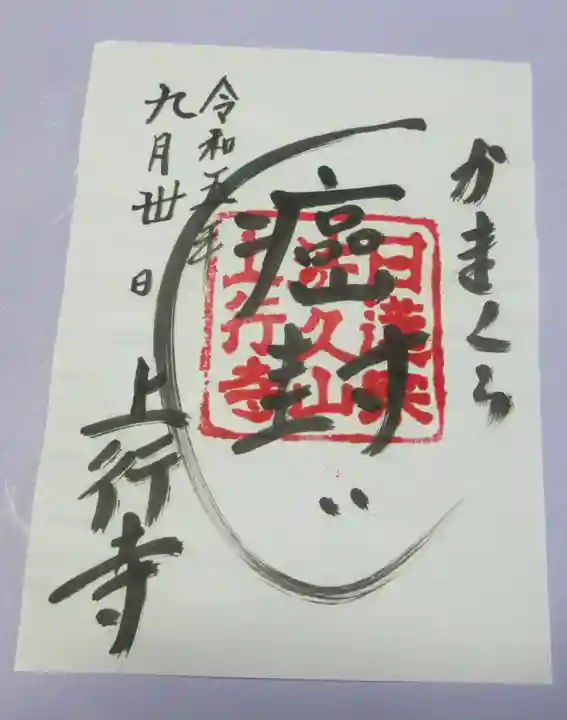 かまくら
癌封じ
令和五年
九月卅日
上行寺
日蓮宗
久山
上行寺